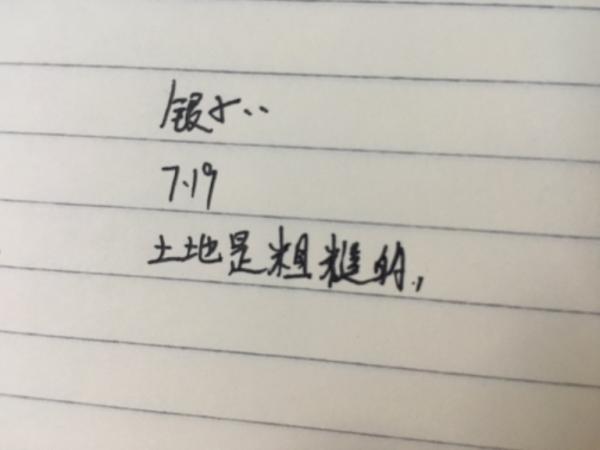 银子..
7.19
土地是粗糙的.,